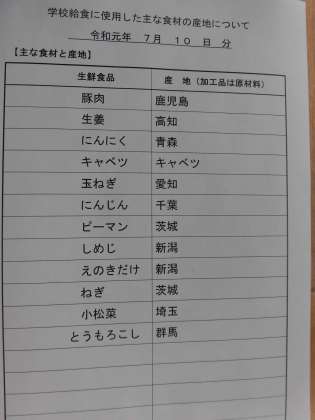 学校給食に使用した主な食材の産地について
令和元年 7月 10 日 分
【主な食材と産地】
生鮮食品 産 地（加工品は原材料）
豚肉 鹿児島
生姜 高知
にんにく 青森
キャベツ キャベツ
玉ねぎ 愛知
にんじん 千葉
ピーマン 茨城
しめじ 新潟
えのきだけ 新潟
ねぎ 茨城
小松菜 埼玉
とうもろこし 群馬